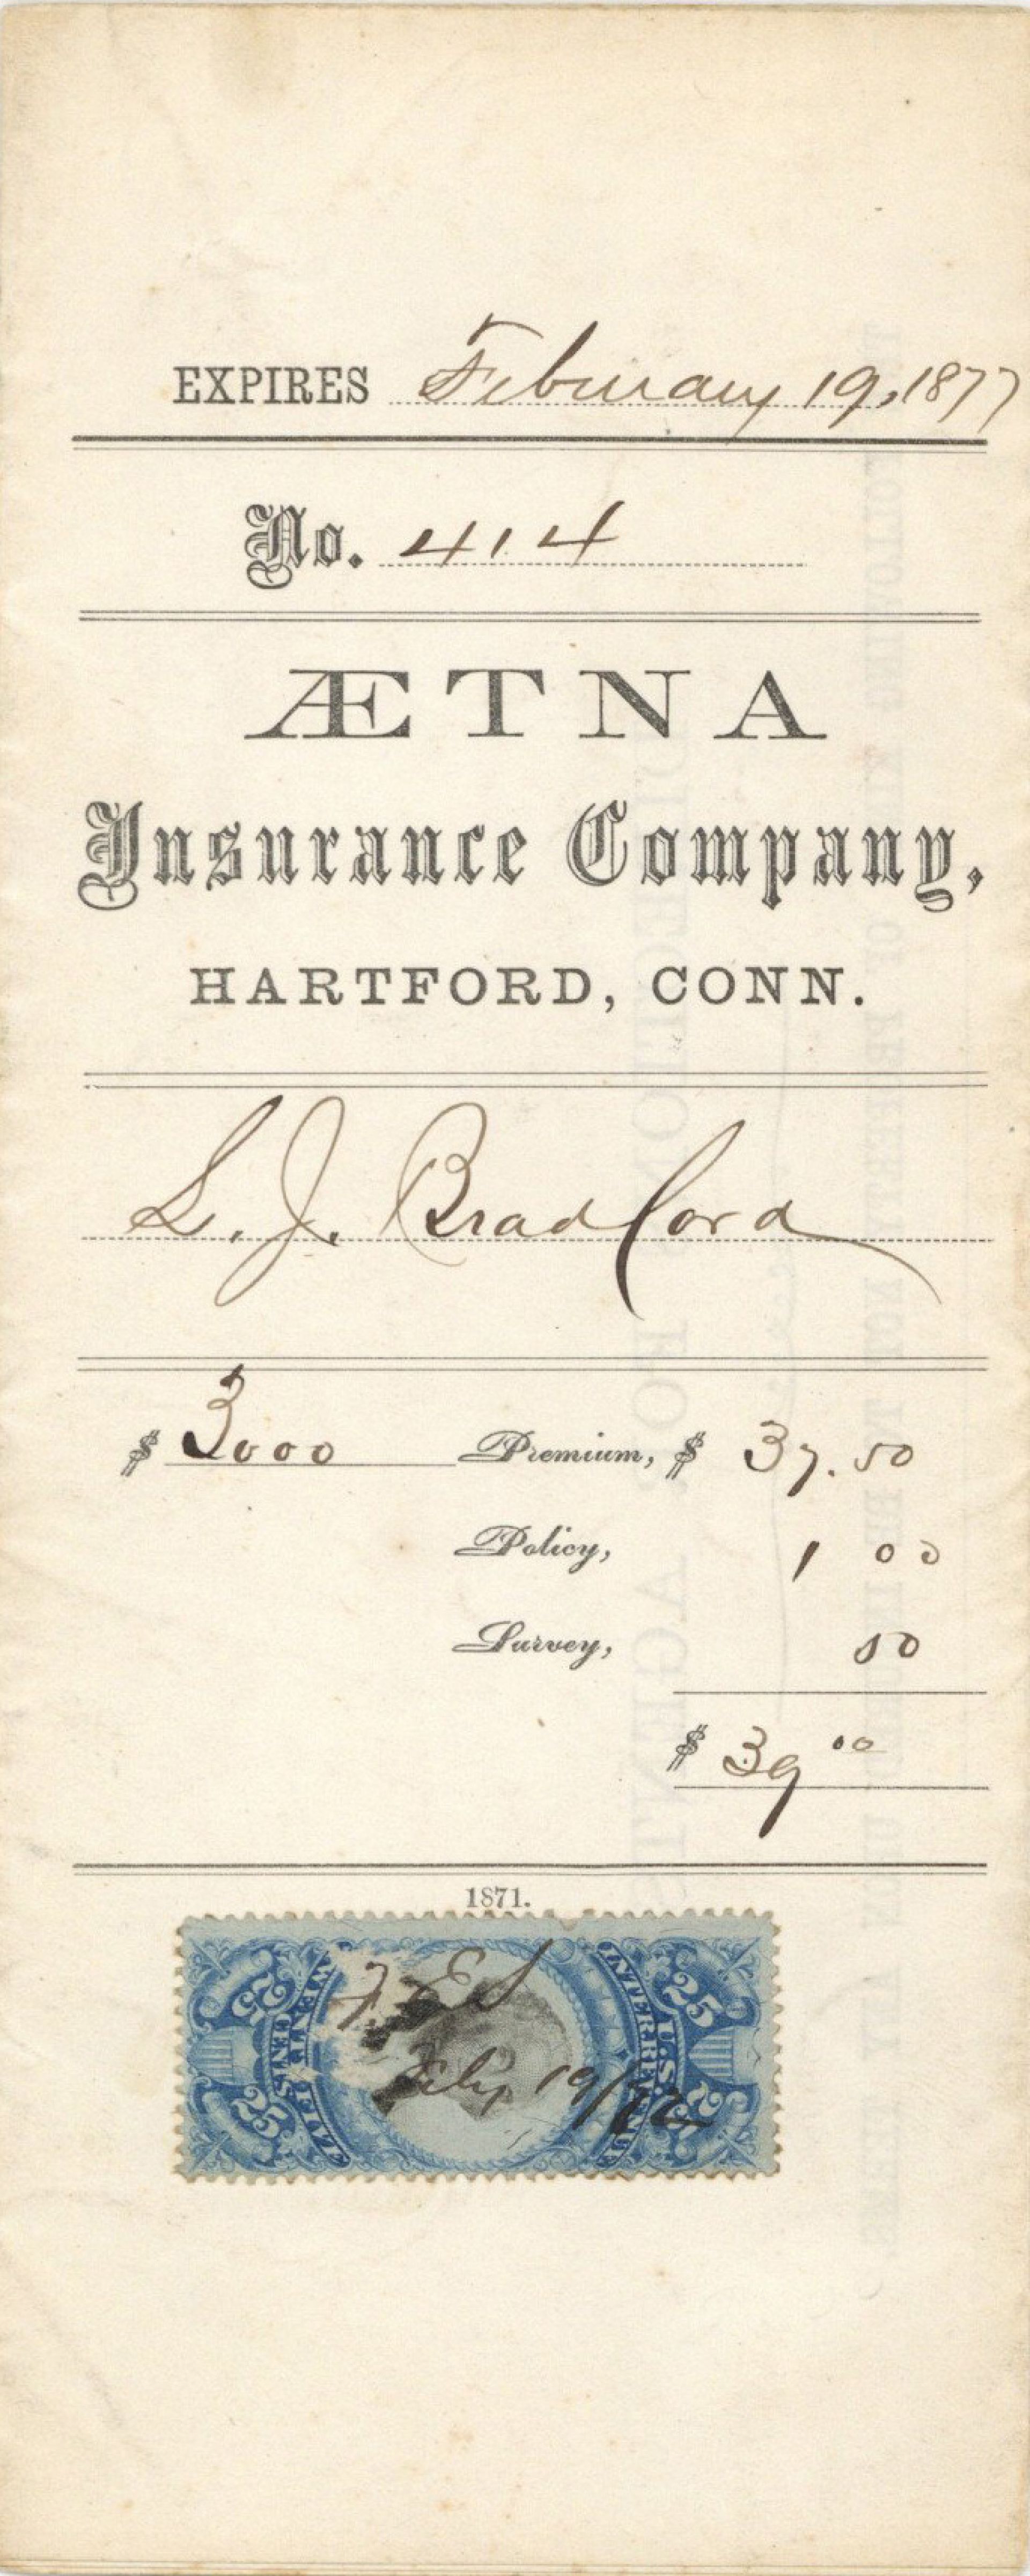 EXPIRES February 19, 1877
No. 414
ÆTNA
Insurance Company,
HARTFORD, CONN.
L. J. Bradford
$ 3000 Premium, $ 37.50
Policy, 1 00
Survey, 50
$ 39 00
1871.
25 25
TWENTY FIVE CENTS
INTER. REVENUE
U.S.
25 25
F. E. S
Feby 19/72